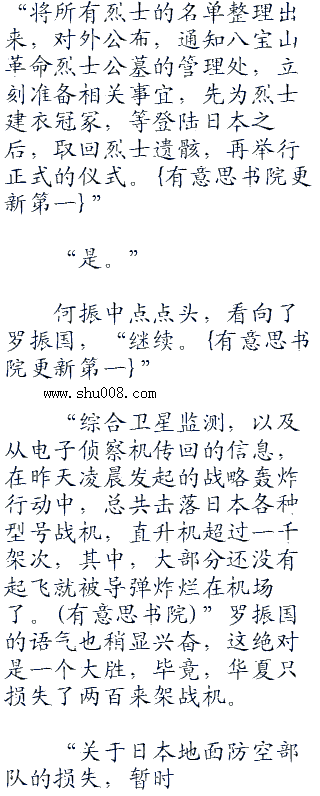 “将所有烈士的名单整理出
来，对外公布，通知八宝山
革命烈士公墓的管理处，立
刻准备相关事宜，先为烈士
建衣冠冢，等登陆日本之
后，取回烈士遗骸，再举行
正式的仪式。{有意思书院更
新第一}”
“是。”
何振中点点头，看向了
罗振国，“继续。{有意思书
院更新第一}”
www.shu008.com
“综合卫星监测，以及
从电子侦察机传回的信息，
在昨天凌晨发起的战略轰炸
行动中，总共击落日本各种
型号战机，直升机超过一千
架次，其中，大部分还没有
起飞就被导弹炸烂在机场
了。(有意思书院)”罗振国
的语气也稍显兴奋，这绝对
是一个大胜，毕竟，华夏只
损失了两百来架战机。
“关于日本地面防空部
队的损失，暂时